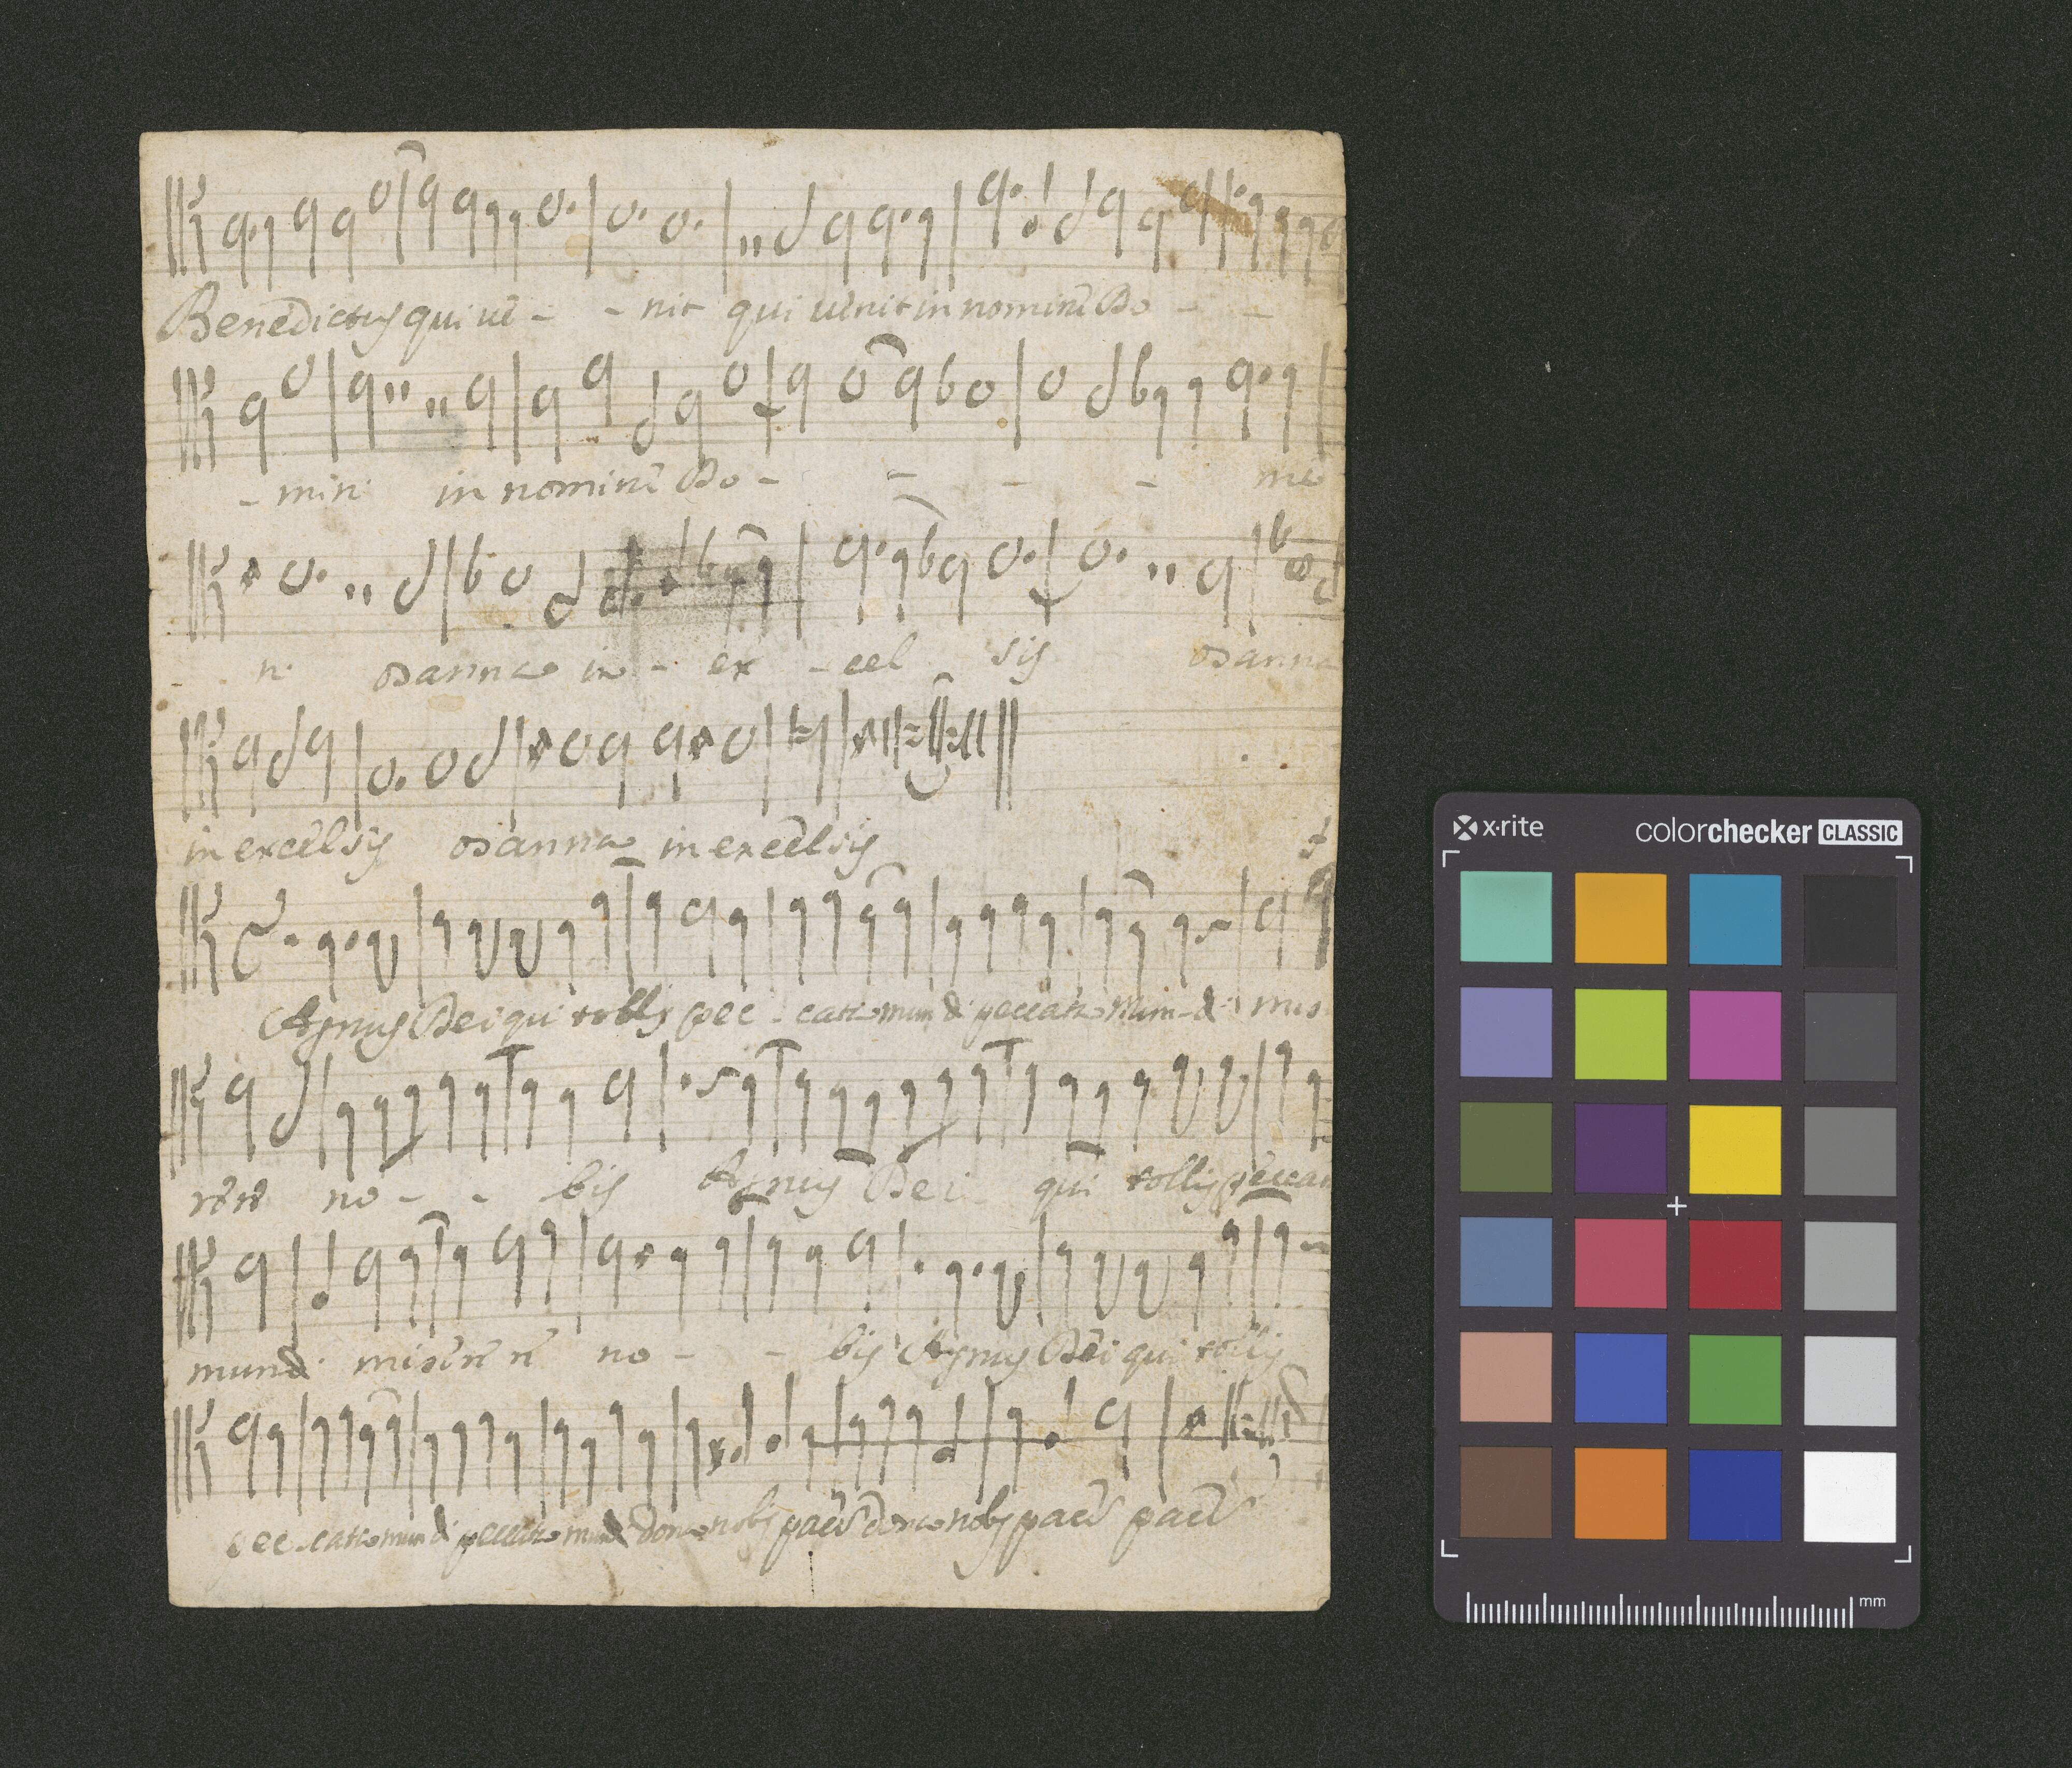 Benedictus qui ve - - nit qui venit in nomine Do - -
- mini in nomine Do - - - - mi
- - ni osanna in - ex - cel - sis osanna
in excelsis osanna in excelsis
Agnus Dei qui tollis pec - cata mundi peccata mun - di mise
rere no - - bis Agnus Dei qui tollis pecca
mundi miserere no - - bis Agnus Dei qui tollis
pec - cata mundi peccata mundi dona nobis pacem dona nobis pacem pacem
x·rite colorchecker CLASSIC
mm